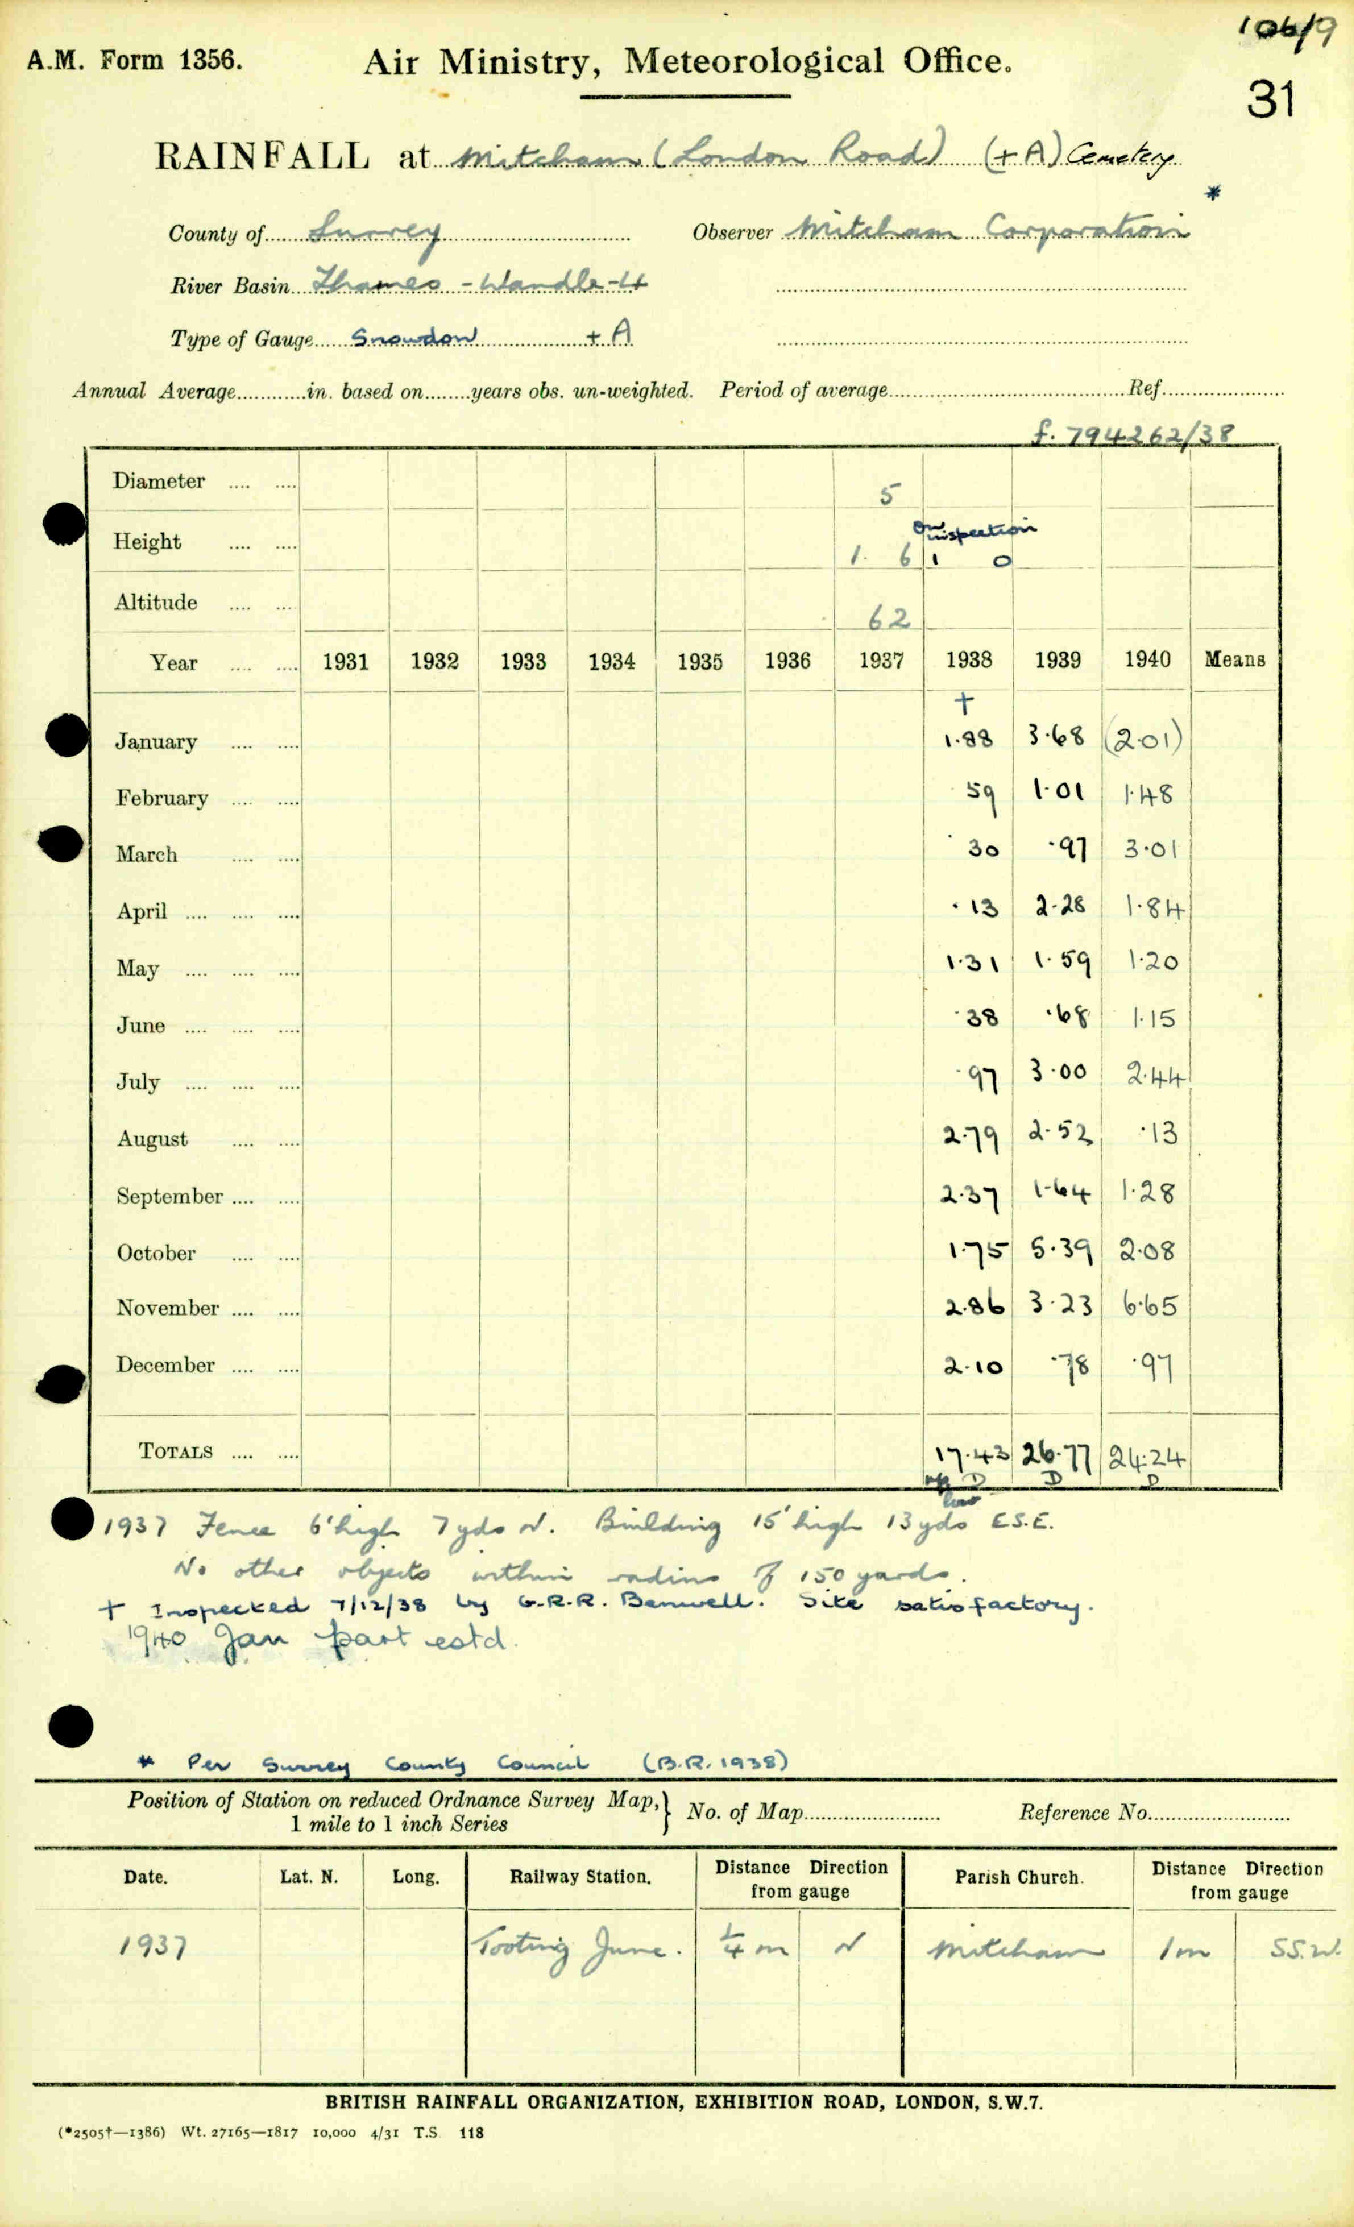 106/9
A.M. Form 1356.
Air Ministry, Meteorological Office.
31
RAINFALL at Mitcham (London Road) (+A) Cemetery
*
County of Surrey Observer Mitcham Corporation
River Basin Thames - Wandle - 4
Type of Gauge Snowdon + A
Annual Average in. based on years obs. un-weighted. Period of average Ref.
f. 794262/38
Diameter 5
on inspection
Height 1. 6 1 0
Altitude 62
Year 1931 1932 1933 1934 1935 1936 1937 1938 1939 1940 Means
†
January 1.88 3.68 (2.01)
February 59 1.01 1.48
March .30 .97 3.01
April .13 2.28 1.84
May 1.31 1.59 1.20
June .38 .68 1.15
July .97 3.00 2.44
August 2.79 2.52 .13
September 2.37 1.64 1.28
October 1.75 5.39 2.08
November 2.86 3.23 6.65
December 2.10 .78 .97
TOTALS 17.43 26.77 24.24
D D D
low
1937 Fence 6' high 7 yds N. Building 15' high 13 yds E.S.E.
No other objects within radius of 150 yards.
† Inspected 7/12/38 by G.R.R. Benwell. Site satisfactory.
1940 Jan part estd.
* Per Surrey County Council (B.R. 1938)
Position of Station on reduced Ordnance Survey Map, } No. of Map Reference No.
1 mile to 1 inch Series
Date. Lat. N. Long. Railway Station. Distance Direction from gauge Parish Church. Distance Direction from gauge
1937 Tooting Junc. 1/4 m N Mitcham 1m SS.W.
BRITISH RAINFALL ORGANIZATION, EXHIBITION ROAD, LONDON, S.W.7.
(*2505†—1386) Wt. 27165—1817 10,000 4/31 T.S. 118